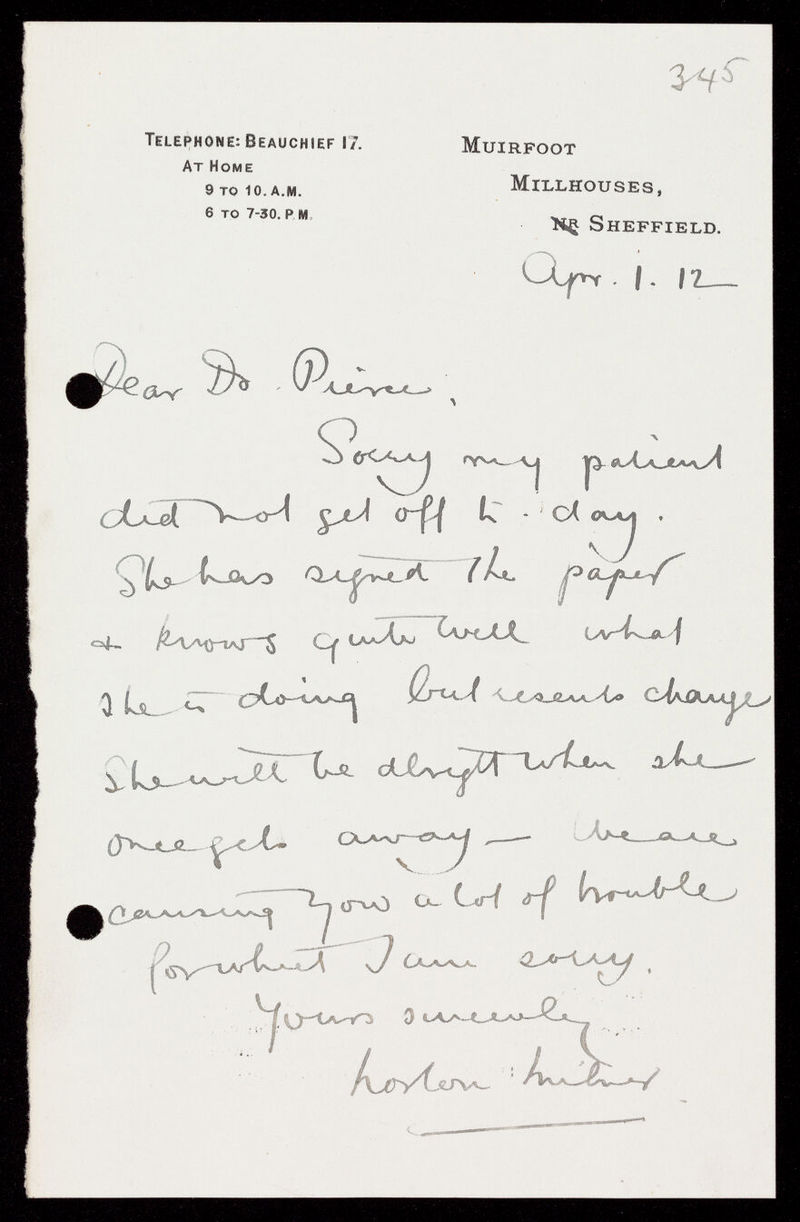 345
TELEPHONE: BEAUCHIEF 17.
AT HOME
9 TO 10. A.M.
6 TO 7-30. P.M.
MUIRFOOT
MILLHOUSES,
NR SHEFFIELD.
Apr. 1. 12
Dear Dr Pierce,
Sorry my patient
did not get off to-day.
She has signed the paper
& knows quite well what
she is doing but resents change
She will be alright when she
once gets away — We are
causing you a lot of trouble
for which I am sorry.
Yours sincerely
Milner